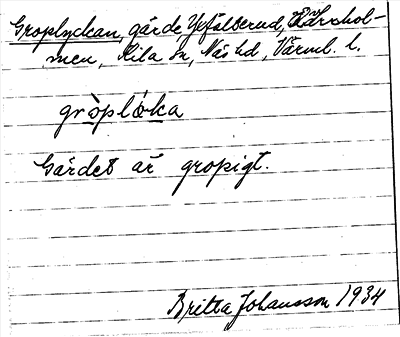 Groplyckan, gärde Yttälberud, Ed, Norrhol-
men, Kila sn, Näs hd, Värml. l.
gròplø̀ka
Gärdet är gropigt.
Britta Johansson 1934